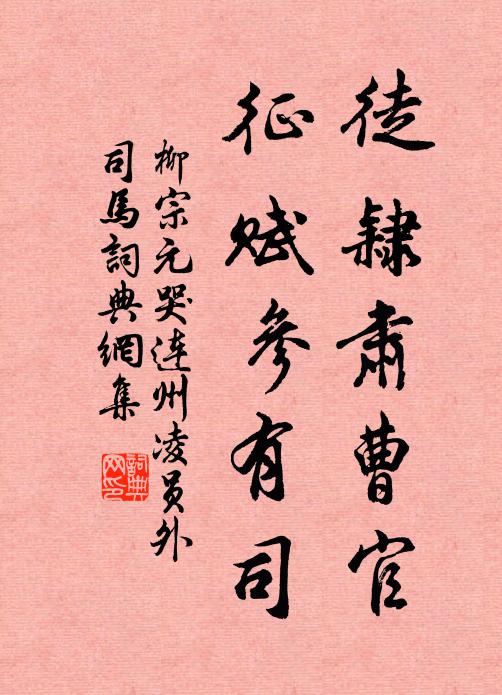 徒隸肅曹官
征賦參有司
柳宗元哭连州凌员外
司馬詞典網集
詞典
网印